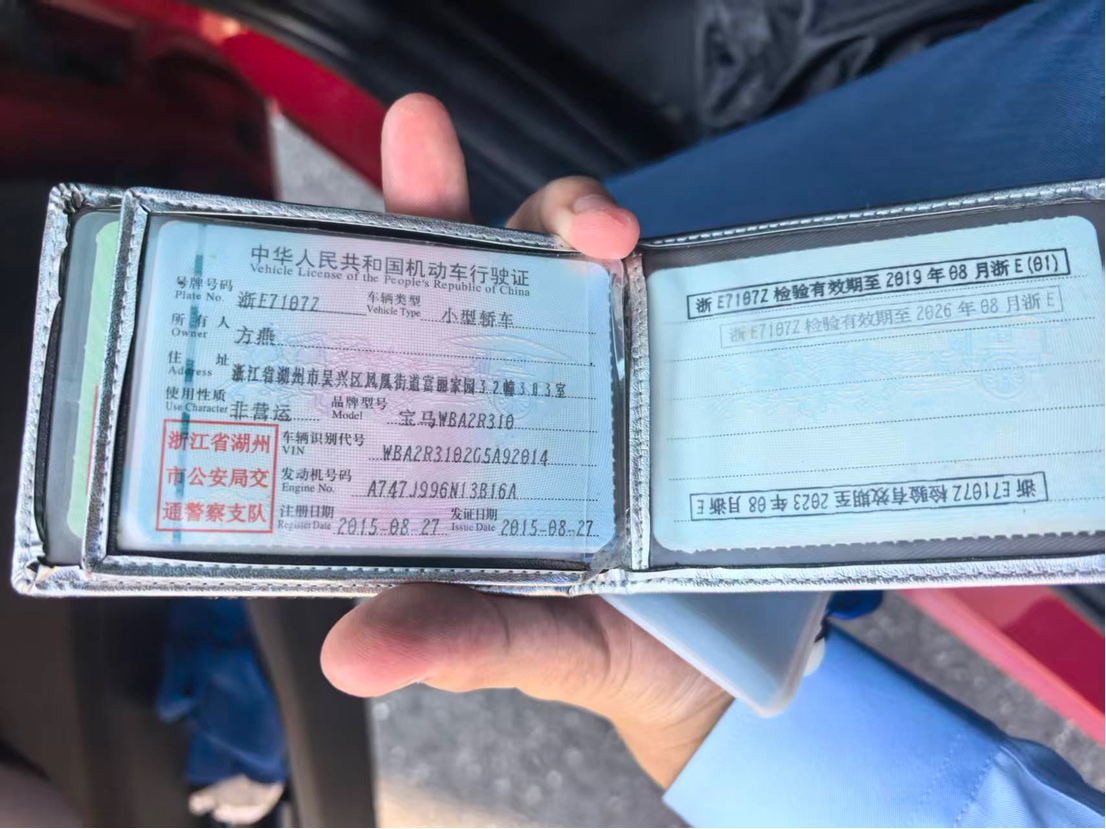 中华人民共和国机动车行驶证
Vehicle License of the People's Republic of China
号牌号码 浙E7107Z 车辆类型 小型轿车
Plate No. Vehicle Type
所有人 方燕
Owner
住址 浙江省湖州市吴兴区凤凰街道富丽家园32幢303室
Address
使用性质 非营运 品牌型号 宝马WBA2R310
Use Character Model
浙江省湖州
市公安局交
通警察支队
车辆识别代号 WBA2R3102G5A92014
VIN
发动机号码 A747J996N13B16A
Engine No.
注册日期 2015-08-27 发证日期 2015-08-27
Register Date Issue Date
浙E7107Z 检验有效期至 2019 年 08 月浙 E (01)
浙 E7107Z 检验有效期至 2026 年 08 月浙 E
浙 E7107Z 检验有效期至 2023 年 08 月浙 E